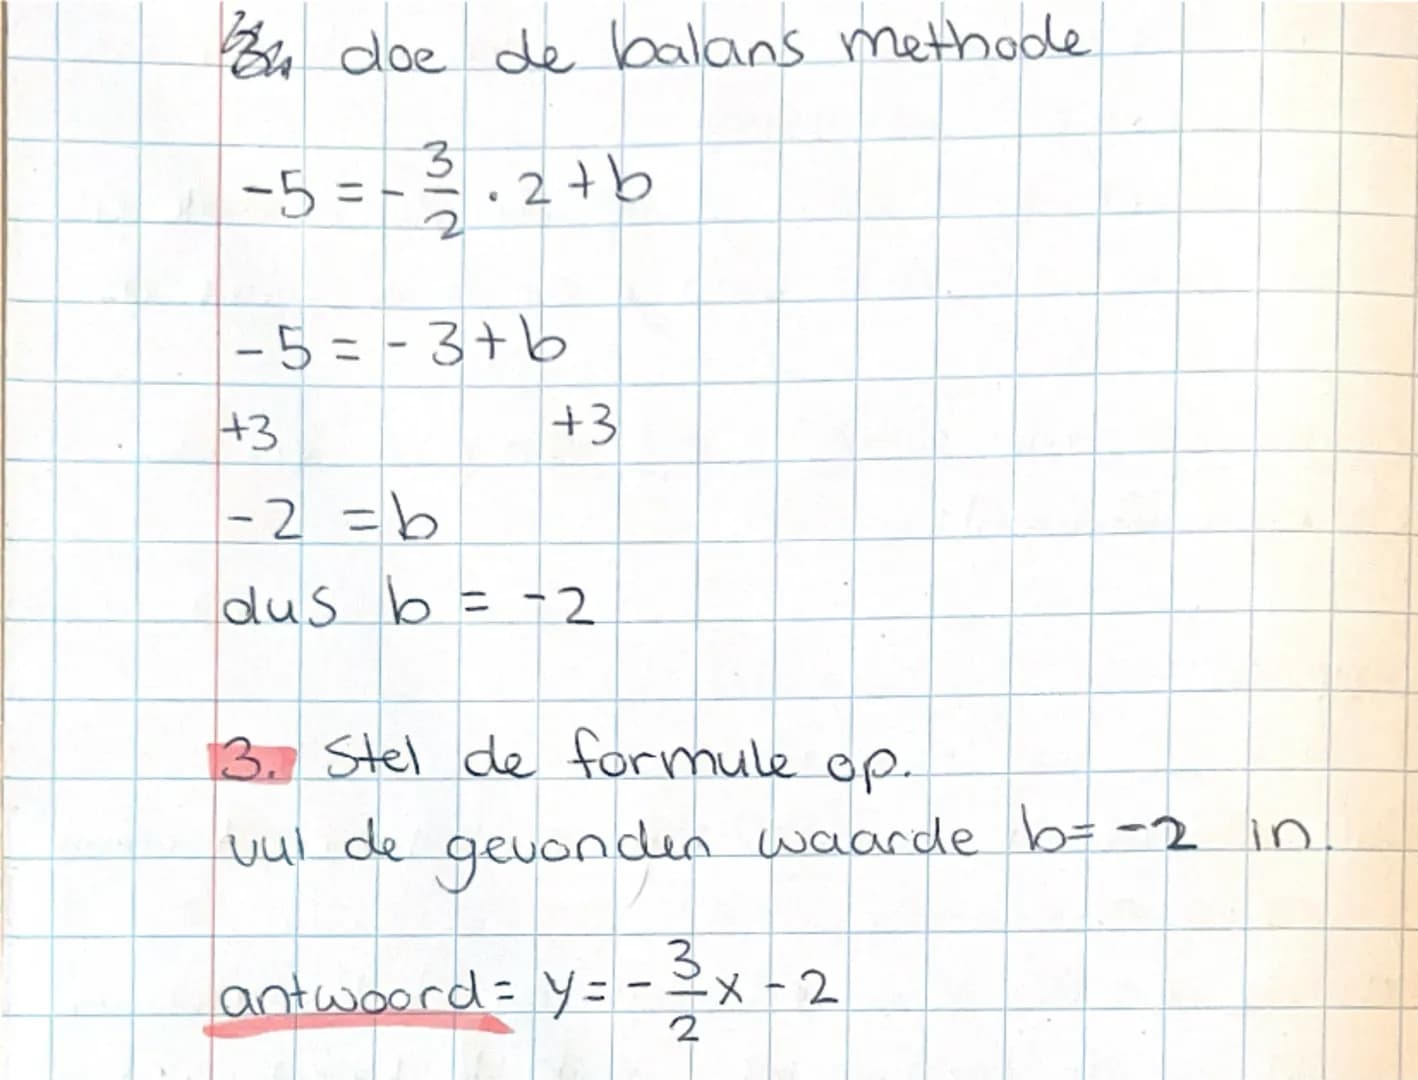 doe de balans methode
-5 = - 3/2 · 2 + b
-5 = - 3 + b
+3 +3
-2 = b
dus b = -2
3. Stel de formule op.
vul de gevonden waarde b = -2 in.
antwoord = y = - 3/2 x - 2